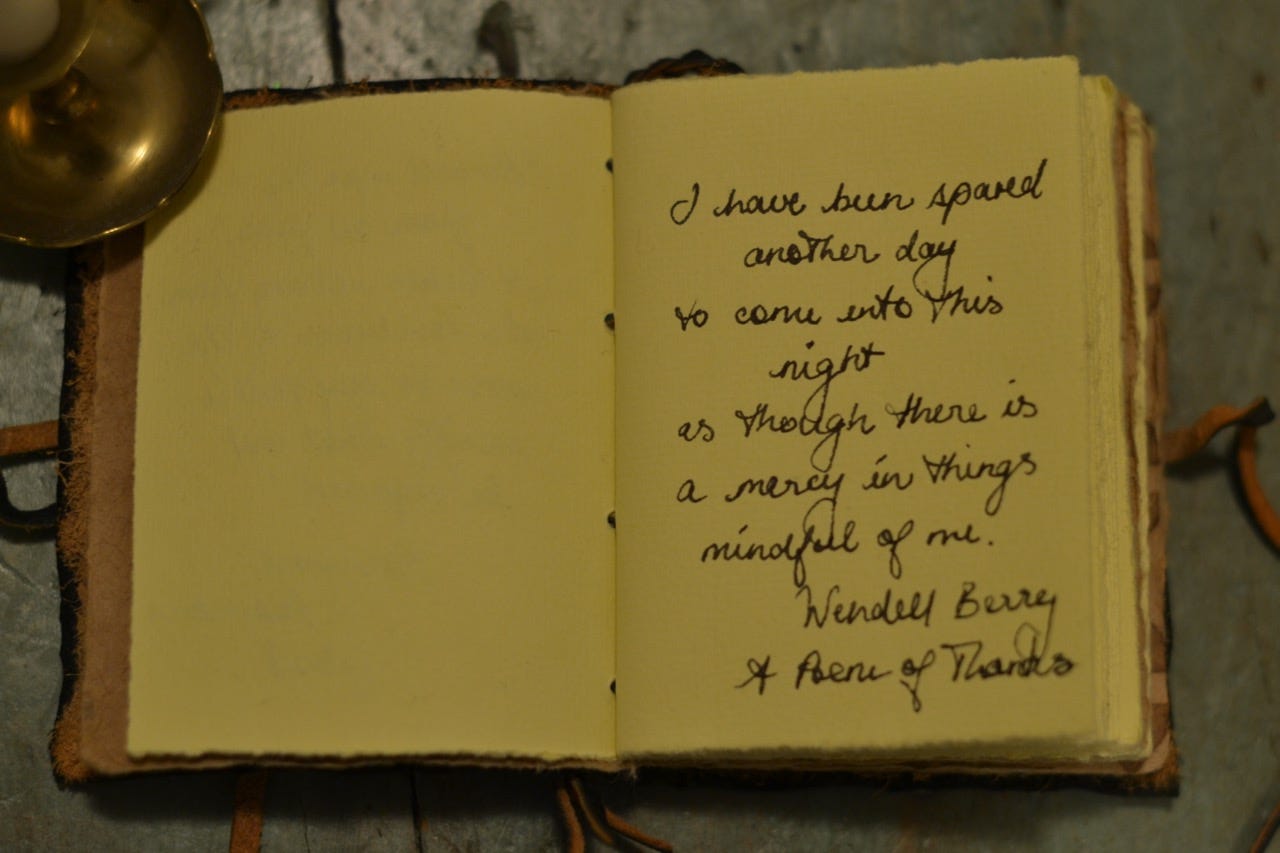 I have been spared
another day
to come into this
night
as though there is
a mercy in things
mindful of me.
Wendell Berry
A Poem of Thanks